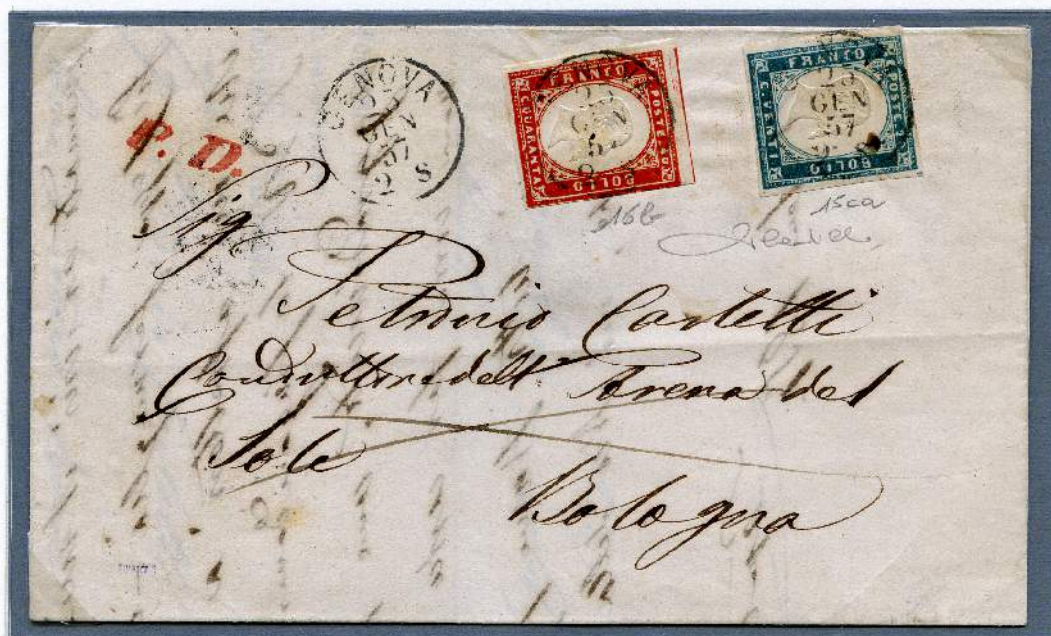 P. D.
GENOVA
GEN
57
S
FRANCO
C. QUARANTA
POSTE 40
BOLLO
GEN
5
FRANCO
C. VENTI
POSTE 20
BOLLO
23
GEN
57
16b
15ca
Sig
Petronio Cartelli
Conduttore dell' Arena del
Sole
Bologna